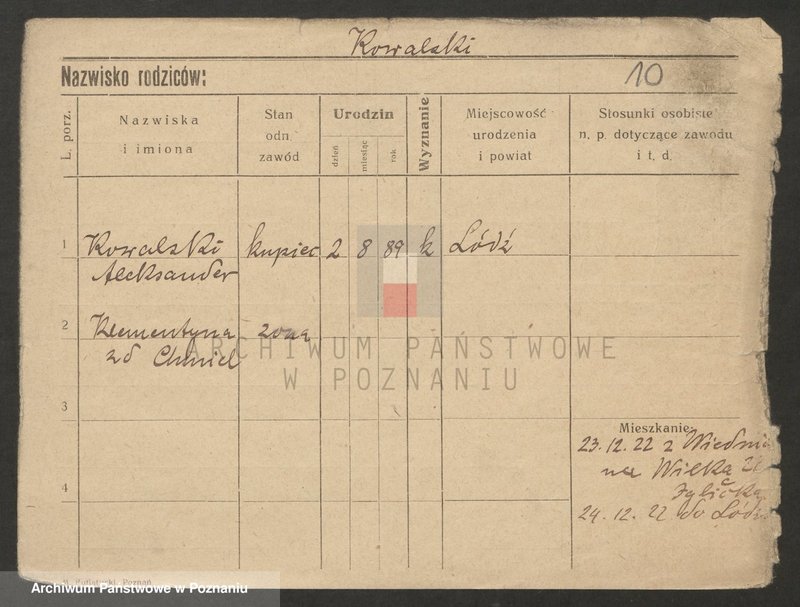 Kowalski
Nazwisko rodziców:
10
L. porz.
Nazwiska
i imiona
Stan
odn.
zawód
Urodzin
dzień
miesiąc
rok
Wyznanie
Miejscowość
urodzenia
i powiat
Stosunki osobiste
n. p. dotyczące zawodu
i t. d.
1
Kowalski kupiec 2 8 89 k Łódź
Aleksander
2
Klementyna żona
zd Chmiel
ARCHIWUM PAŃSTWOWE
W POZNANIU
3
Mieszkanie
23.12.22 z Wiednia
na Wielka
4
24.12.22 do Łódź
Poznań
Archiwum Państwowe w Poznaniu